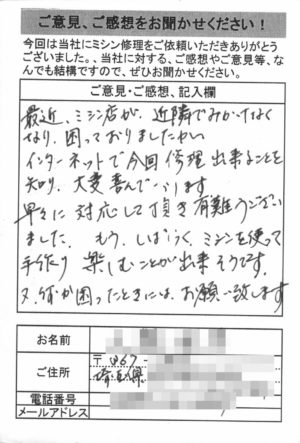 ご意見、ご感想をお聞かせください!
今回は当社にミシン修理をご依頼いただきありがとう
ございました。、当社に対する、ご感想やご意見等、な
んでも結構ですので、ぜひお聞かせください。
ご意見・ご感想、記入欄
最近、ミシン店が、近隣でみかけなく
なり、困っておりました
インターネットで今回修理出来ることを
知り、大変喜んでいます
早々に対応して頂き有難うござい
ました。もう、しばらく、ミシンを使って
手作り楽しむことが出来そうです。
又、何か困ったときには、お願い致します
お名前
ご住所
〒
埼玉県
電話番号
メールアドレス